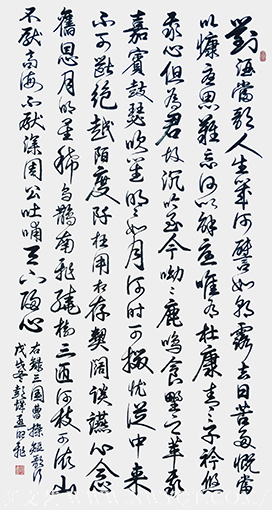 對酒當歌人生幾何譬如朝露去日苦多慨當
以慷憂思難忘何以解憂唯有杜康青青子衿悠
悠我心但為君故沉吟至今呦呦鹿鳴食野之苹我
嘉賓鼓瑟吹笙明明如月何時可掇憂從中來
不可斷絕越陌度阡枉用相存契闊談讌心念
舊恩月明星稀烏鵲南飛繞樹三匝何枝可依山
不厭高海不厭深周公吐哺天下歸心
右錄三國曹操短歌行
戊戌冬